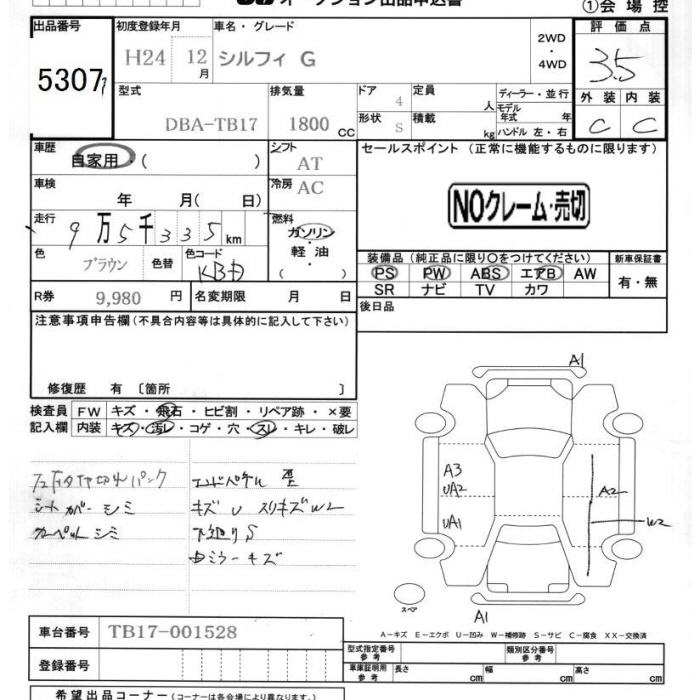 オークション出品申込書
①会場控
出品番号 初度登録年月 車名・グレード 評価点
5307 H24 12月 シルフィ G 2WD・4WD 3.5
型式 排気量 ドア 定員 ディーラー・並行 外装 内装
DBA-TB17 1800 CC 4 人 モデル年式 年 C C
形状 S 積載 kg ハンドル 左・右
車歴 シフト セールスポイント (正常に機能するものに限ります)
自家用・( ) AT
車検 冷房 AC
年 月( 日) NOクレーム・売切
走行 燃料
9万5千335km ガソリン・
色 色替 色コード 軽油・
ブラウン ( )
装備品 (純正品に限り○をつけてください) 新車保証書
PS PW ABS エアB AW 有・無
SR ナビ TV カワ
R券 9,980 円 名変期限 月 日 後日品
注意事項申告欄 (不具合内容等は具体的に記入して下さい)
修復歴 有 〔箇所 〕
検査員 FW キズ・飛石・ヒビ割・リペア跡・×要
記入欄 内装 キズ・汚レ・コゲ・穴・スレ・キレ・破レ
シートカバー シミ キズ U スリキズW2
カーペット シミ 下廻りS
ミラーキズ
A1
A3
UA2 A2
UA1 W2
スペア
A1
A−キズ E−エクボ U−凹み W−補修跡 S−サビ C−腐食 XX−交換済
車台番号 TB17-001528
型式指定番号 参考 類別区分番号 参考
登録番号 車庫証明用 参考 長さ cm 幅 cm 高さ cm
希望出品コーナー (コーナーは各会場により異なります)